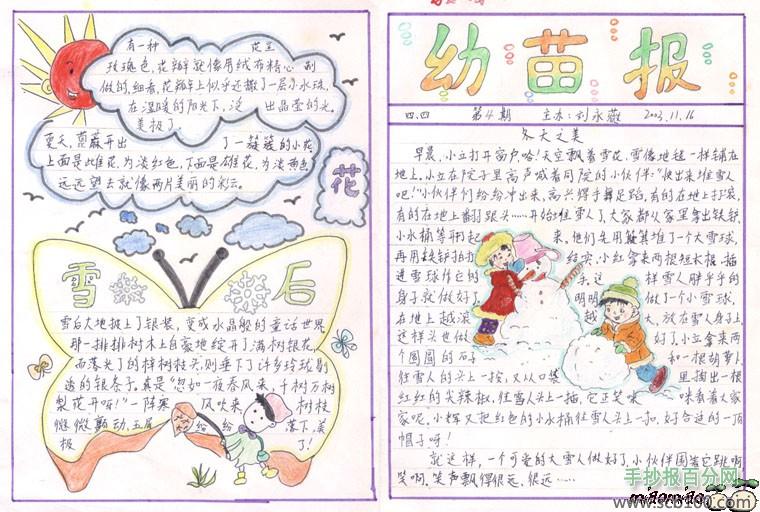 有一种 花呈
玫瑰色,花瓣就像用绒布精心制
做的,细看,花瓣上似乎还撒了一层小水珠,
在温暖的阳光下,泛 出晶莹的光.
美极了.
夏天,葫芦开出 了一簇簇的小花,
上面是雌花,为淡红色,下面是雄花,为淡黄色
远远望去就像两片美丽的彩云.
花
雪 后
雪后大地披上了银装,变成水晶般的童话世界.
那一排排树木上自豪地绽开了满树银花,
而落光了的梓树枝头,则垂下了许多玲珑剔
透的银条子,真是“忽如一夜春风来,千树万树
梨花开呀!”一阵寒 风吹来, 树枝
微微颤动,玉屑 纷纷 落下,美
极 了!
幼苗报
四、四 第4期 主办:刘永薇 2003.11.16
冬天之美
早晨,小立打开窗户,哈!天空飘着雪花,雪像地毯一样铺在
地上,小立在院子里高声喊着同院的小伙伴:“快出来堆雪人
吧!”小伙伴们纷纷冲出来,高兴得手舞足蹈,有的在地上打滚,
有的在地上翻跟头……开始堆雪人了,大家都从家里拿出铁锹、
小水桶等 来,他们先用 堆了一个大雪球,
再用铁锹拍 结实,小红拿来两根短木棍,插
进雪球作它的 手,这 样雪人胖乎乎的
身子就做好了. 明明 做了一个小雪球,
在地上越滚 越 大,放在雪人身子上
这样头也做 好了,小立拿来两
个圆圆的石子 和一根胡萝卜
往雪人的头上一按,又从口袋 里掏出一根
红红的尖辣椒,往雪人头上一插,它正笑咪 咪看着大家
家呢,小辉又把红色的小水桶往雪人头上一扣,好合适的一顶
帽子呀!
就这样,一个可爱的大雪人做好了,小伙伴围着它跳啊
笑啊,笑声飘得很远,很远……
手抄报百分网
www.scb100.com